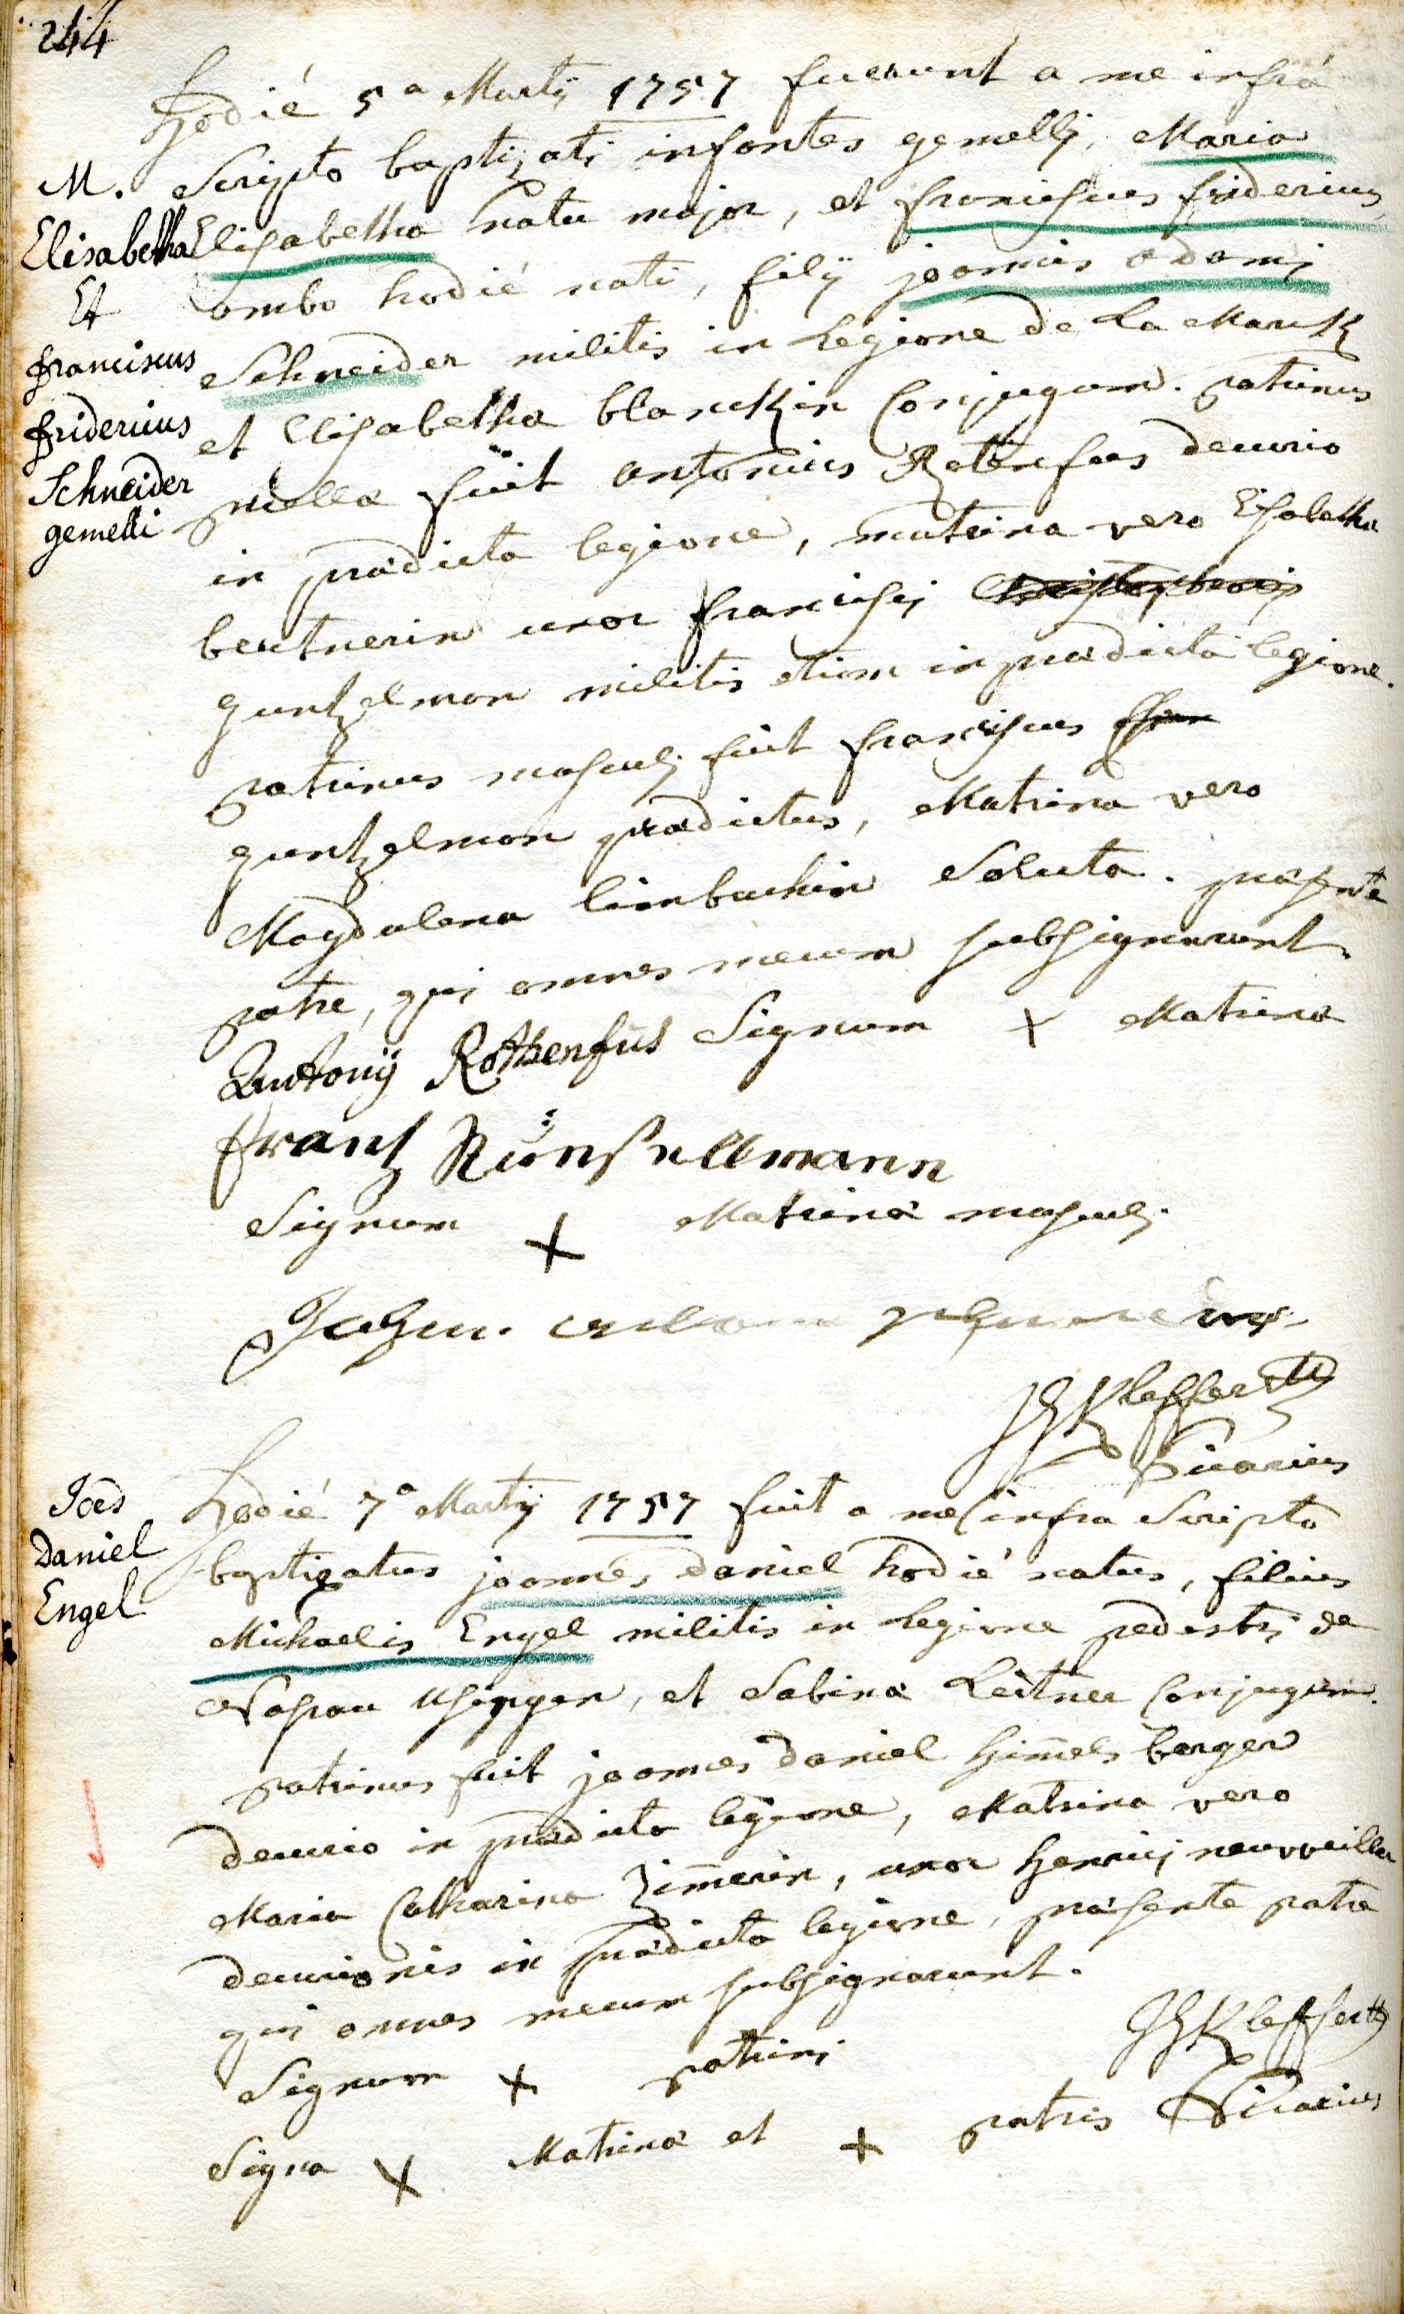 244
Hodié 5a Martij 1757 fuerunt a me infrá
scripto baptizati infantes gemellj, Maria
Elisabetha natu major, et franciscus fridericus,
ambo hodié nati, filij joannis adamj
Schneider militis in Legione de La Marck
et Elisabetha blanckin Conjugum. patrinus
puellæ fuit antonius Rotenfus decurio
in prædicta legione, matrina vero Elisabetha
beutnerin uxor franciscj
guntzelman militis etiam in prædictá legione.
patrinus masculj fuit franciscus
guntzelman prædictus, Matrina vero
Magdalena limbachin Soluta. præsente
patre, qui omnes mecum subsignarunt.
Antonij Rothenfus Signum X Matrinæ
frantz Kunsellmann
Signum X Matrinæ masculj.
JGKleffer
Vicarius
M.
Elisabetha
Et
franciscus
fridericus
Schneider
gemelli
Hodié 7a Martij 1757 fuit a me infra Scripto
baptizatus joannes daniel hodié natus, filius
Michaelis Engel militis in Legione pedestrj de
Nassau Usingen, et Sabina Leitner Conjugum.
patrinus fuit joannes daniel himelsberger
decurio in prædicta legione, Matrina vero
Maria Catharina Zimerin, uxor henricj neuweiller
decurionis in prædicta legione, præsente patre
qui omnes mecum subsignarunt.
Signum X patrini
JGKleffer
Signa X Matrinæ et X patris Vicarius
Joes
Daniel
Engel